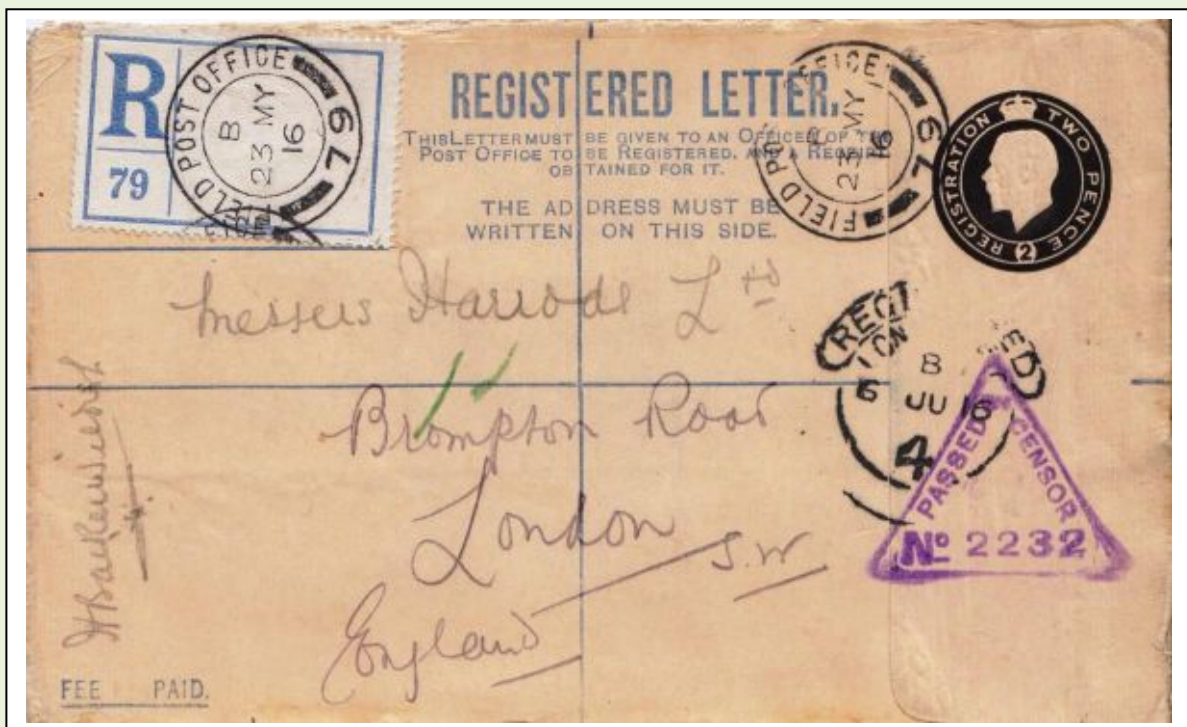 R
79
FIELD POST OFFICE
79
B
23 MY
16
REGISTERED LETTER.
THIS LETTER MUST BE GIVEN TO AN OFFICER OF THE
POST OFFICE TO BE REGISTERED, AND A RECEIPT
OBTAINED FOR IT.
THE ADDRESS MUST BE
WRITTEN ON THIS SIDE.
FIELD POST OFFICE
79
23 MY
16
REGISTRATION TWO PENCE
2
Messers Harrods Ltd
Brompton Road
London S.W
England
REGISTERED
B
6 JU 16
4
PASSED CENSOR
No 2232
FEE PAID.